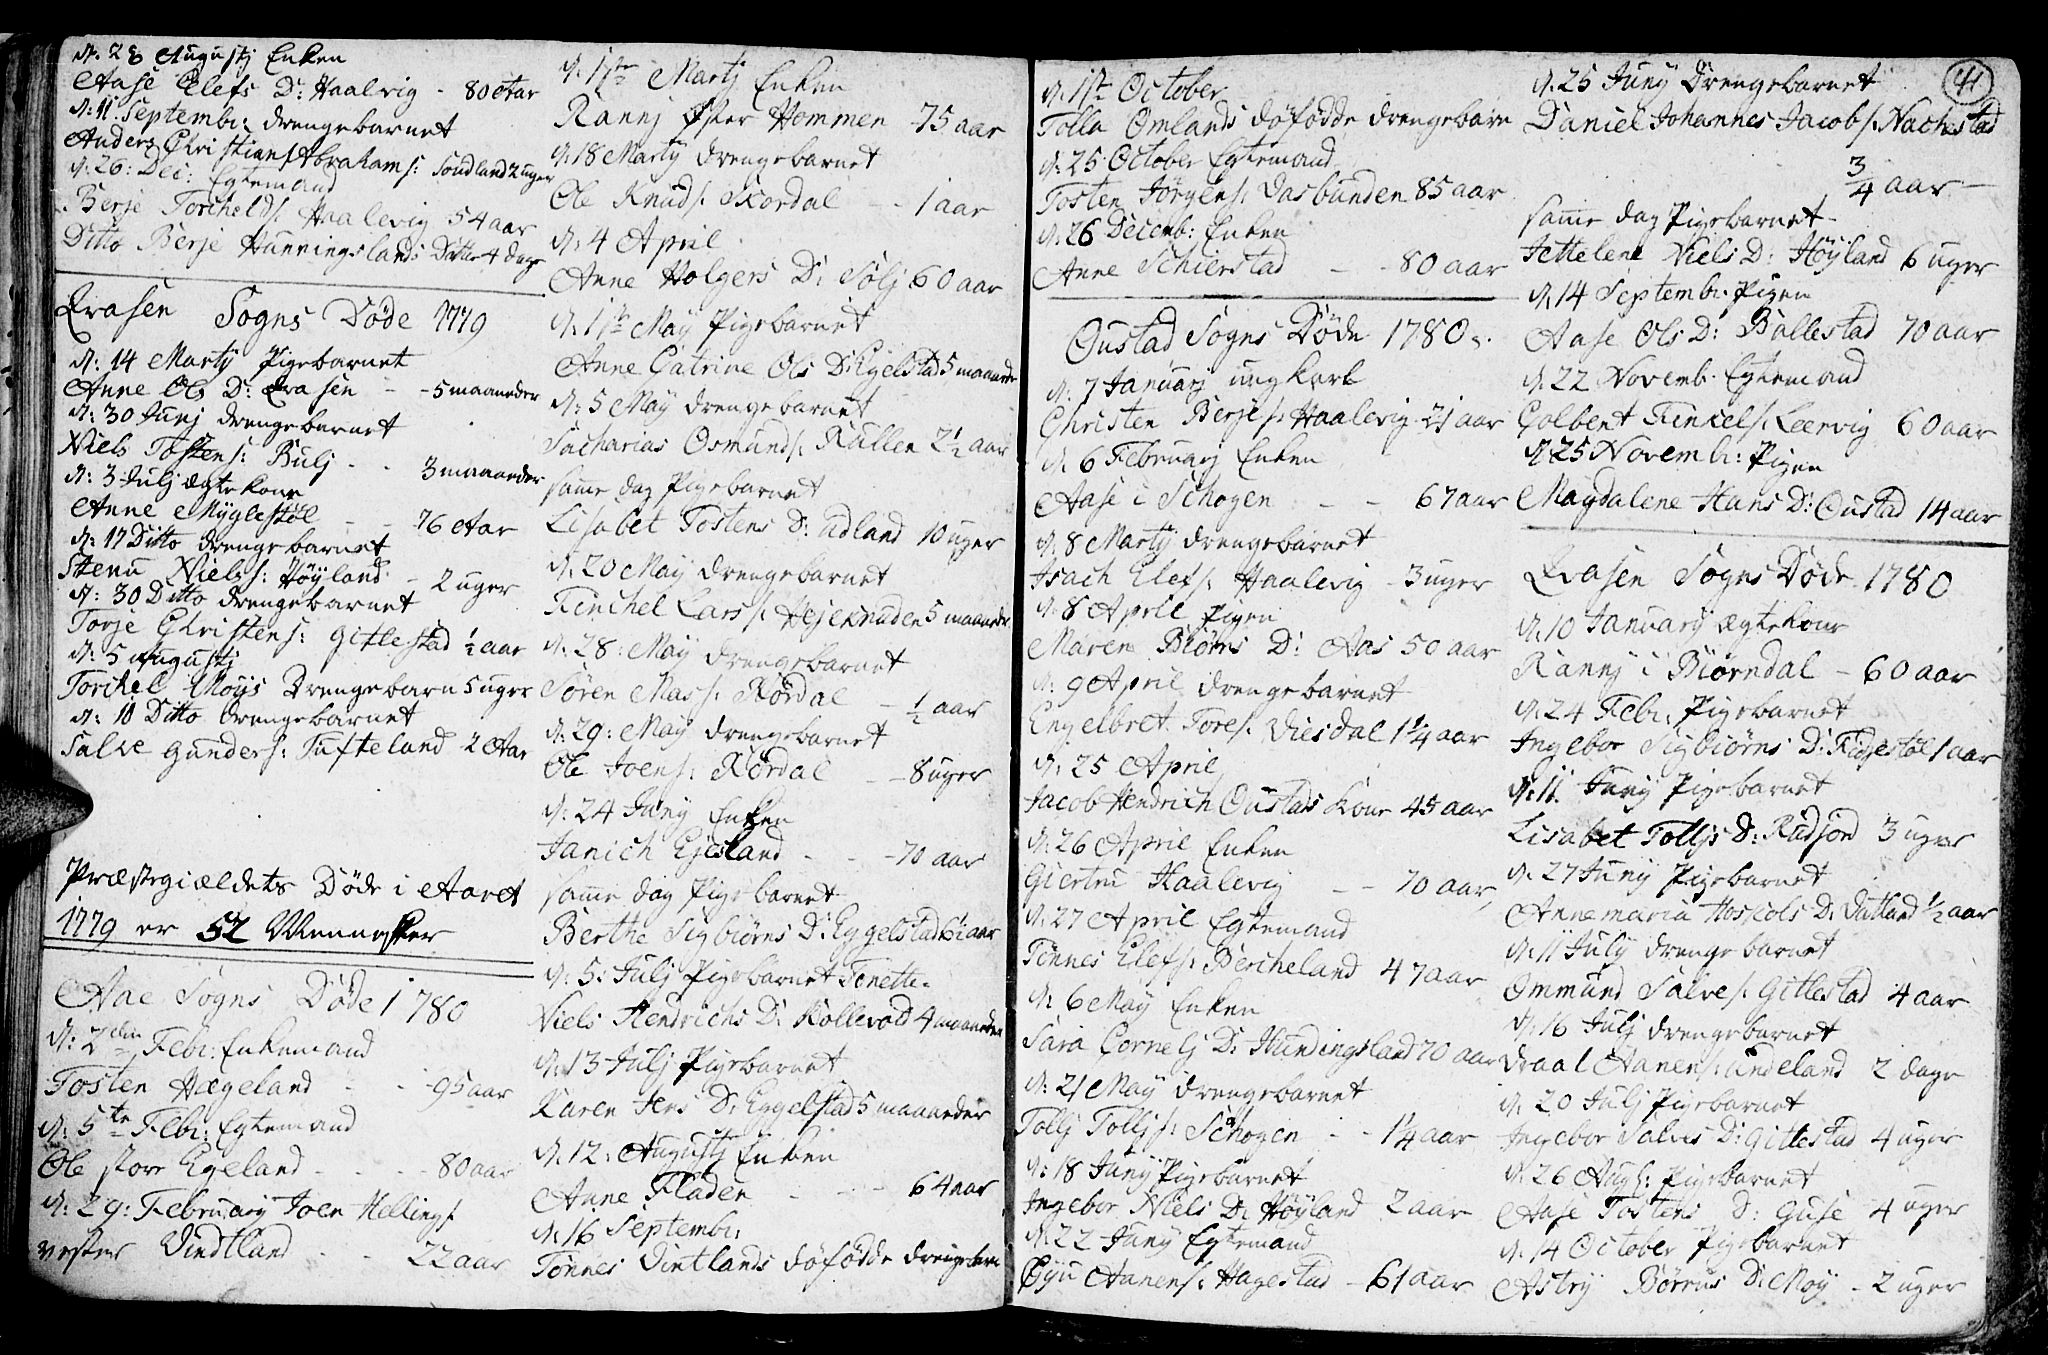 d: 28 Augustj Enken
Aase Elefs D: Haalvig - 80 Aar
d: 11 Septembr: drengebarnet
Anders Christian Abrahams: Sondland 2 uger
d: 26: Dec: Egtemand
Berje Torchelds: Haalevig 54 aar
Ditto Berje Hunningslands Datter 4 dage
Evasen Sogns Døde 1779
d: 14 Martij Pigebarnet
Anne Ols D: Evasen - - 5 maaneder
d: 30 Junj drengebarnet
Niels Tostens: Bulj - - 3 maaneder
d: 3 Julj Ægtekone
Anne Myglestøl - - 76 Aar
d: 17 Ditto drengebarnet
Stenu Niels: Høyland - 2 uger
d: 30 Ditto drengebarnet
Torje Christens: Gitlestad ½ aar
d: 5 Augustj
Torchel Moÿs Drengebarn 5 uger
d: 10 Ditto drengebarnet
Salve Gunders: Tufteland 2 Aar
Præstegiældets Døde i Aaret
1779 er 52 Mennesker
Aae Sogns Døde 1780
d: 2den Febr: Enkemand
Tosten Hægeland - - 95 aar
d: 5te Febr: Egtemand
Ole store Egeland - - - 80 aar
d: 29: February Joen Hellings:
vester Vindtland - - 22 aar
d: 1ste Martj Enken
Rannj øster Hommen - 75 aar
d: 18 Martij drengebarnet
Ole Knuds: Skordal - - 1 aar
d: 4 April
Anne Holgers D: Sølj 60 aar
d: 1ste Maÿ Pigebarnet
Anne Catrine Ols D: Egelstad 5 maaneder
d: 5 Maÿ drengebarnet
Sacharias Osmunds: Kallen 2½ aar
samme dag Pigebarnet
Lisabet Tostens D: Udland 10 uger
d: 20 Maÿ drengebarnet
Tenchel Lars: Hejeknuden 5 maaneder
d: 28: Maÿ drengebarnet
Søren Mas: Rørdal - ½ aar
d: 29: Maÿ drengebarnet
Ole Joens: Rørdal - - 8 uger
d: 24 Junÿ Enken
Janich Egesland - - - 70 aar
samme dag Pigebarnet
Berthe Sigbiørns D: Eggelstad 6½ aar
d: 5: Julj Pigebarnet Tenette
Niels Hendrichs D: Kollevod 4 maaneder
d: 13 Julj Pigebarnet
Karen Jens D: Eggelstad 5 maaneder
d: 12: Augustj Enken
Anne Fladen - - - 64 aar
d: 16 Septembr:
Tønnes Vintlands døfødde drengebarn
d: 1ste October
Tolla Omlands døfødde drengebarn
d: 25 October Egtemand
Tosten Jørgens: Dasbunden 85 aar
d: 26 Decemb: Enken
Anne Schierstad - - 80 aar
Oustad Sogns Døde 1780.
d: 7 Januarj ungkarl
Christen Berjes: Haalevig 21 aar
d: 6 Februarj Enken
Aase i Schogen - - 67 aar
d: 8 Martij drengebarnet
Isach Elefs: Haalevig - 3 uger
d: 8 April Pigen
Maren Biørns D: Aas 50 aar
d: 9 April drengebarnet
Engelbret Tores: Viesdal 1¼ aar
d: 25 April
Jacob Hendrich Oustads Kone 45 aar
d: 26 April Enken
Giertru Haalevig - - 70 aar
d: 27 April Egtemand
Tønnes Elefs: Bercheland 47 aar
d: 6 Maÿ Enken
Sara Cornels D: Hundingsland 70 aar
d: 21 Maÿ drengebarnet
Tollj Tolljs: Schogen - - 1¼ aar
d: 18 Junÿ Pigebarnet
Ingebor Niels D: Høyland 2 aar
d: 22 Junÿ Egtemand
Gyu Aanens: Hagestad - 61 aar
41
d: 25 Junÿ Drengebarnet
Daniel Johannes Jacobs: Nachestad
¾ aar -
samme dag Pigebarnet
Jettelene Niels D: Høyland 6 uger
d: 14 Septembr: Pigen
Aase Ols D: Ballestad 70 aar
d: 22 Novemb: Egtemand
Colbent Tenkels: Leervig 60 aar
d: 25 Novemb: Pigen
Magdalene Hans D: Oustad 14 aar
Evasen Sogns Døde 1780
d: 10 Januarÿ Ægtekone
Rannj i Biørndal - 60 aar
d: 24 Febr: Pigebarnet
Ingebor Sigbiørns D: Figestøl 1 aar
d: 11 Junÿ Pigebarnet
Lisabet Tolljs D: Rudsiord 3 uger
d: 27 Junÿ Pigebarnet
Anne maria Hoskols D: Datland ½ aar
d: 11 Julÿ drengebarnet
Ommund Salves: Gitlestad 4 aar
d: 16 Julj drengebarnet
Draal Aanens: Undeland 2 dage
d: 20 Julj Pigebarnet
Ingebor Salves D: Gitlestad 4 uger
d: 26 Aug: Pigebarnet
Aase Tostens D: Guse 4 uger
d: 14 October Pigebarnet
Astrÿ Børrus D: Moÿ - 2 uger